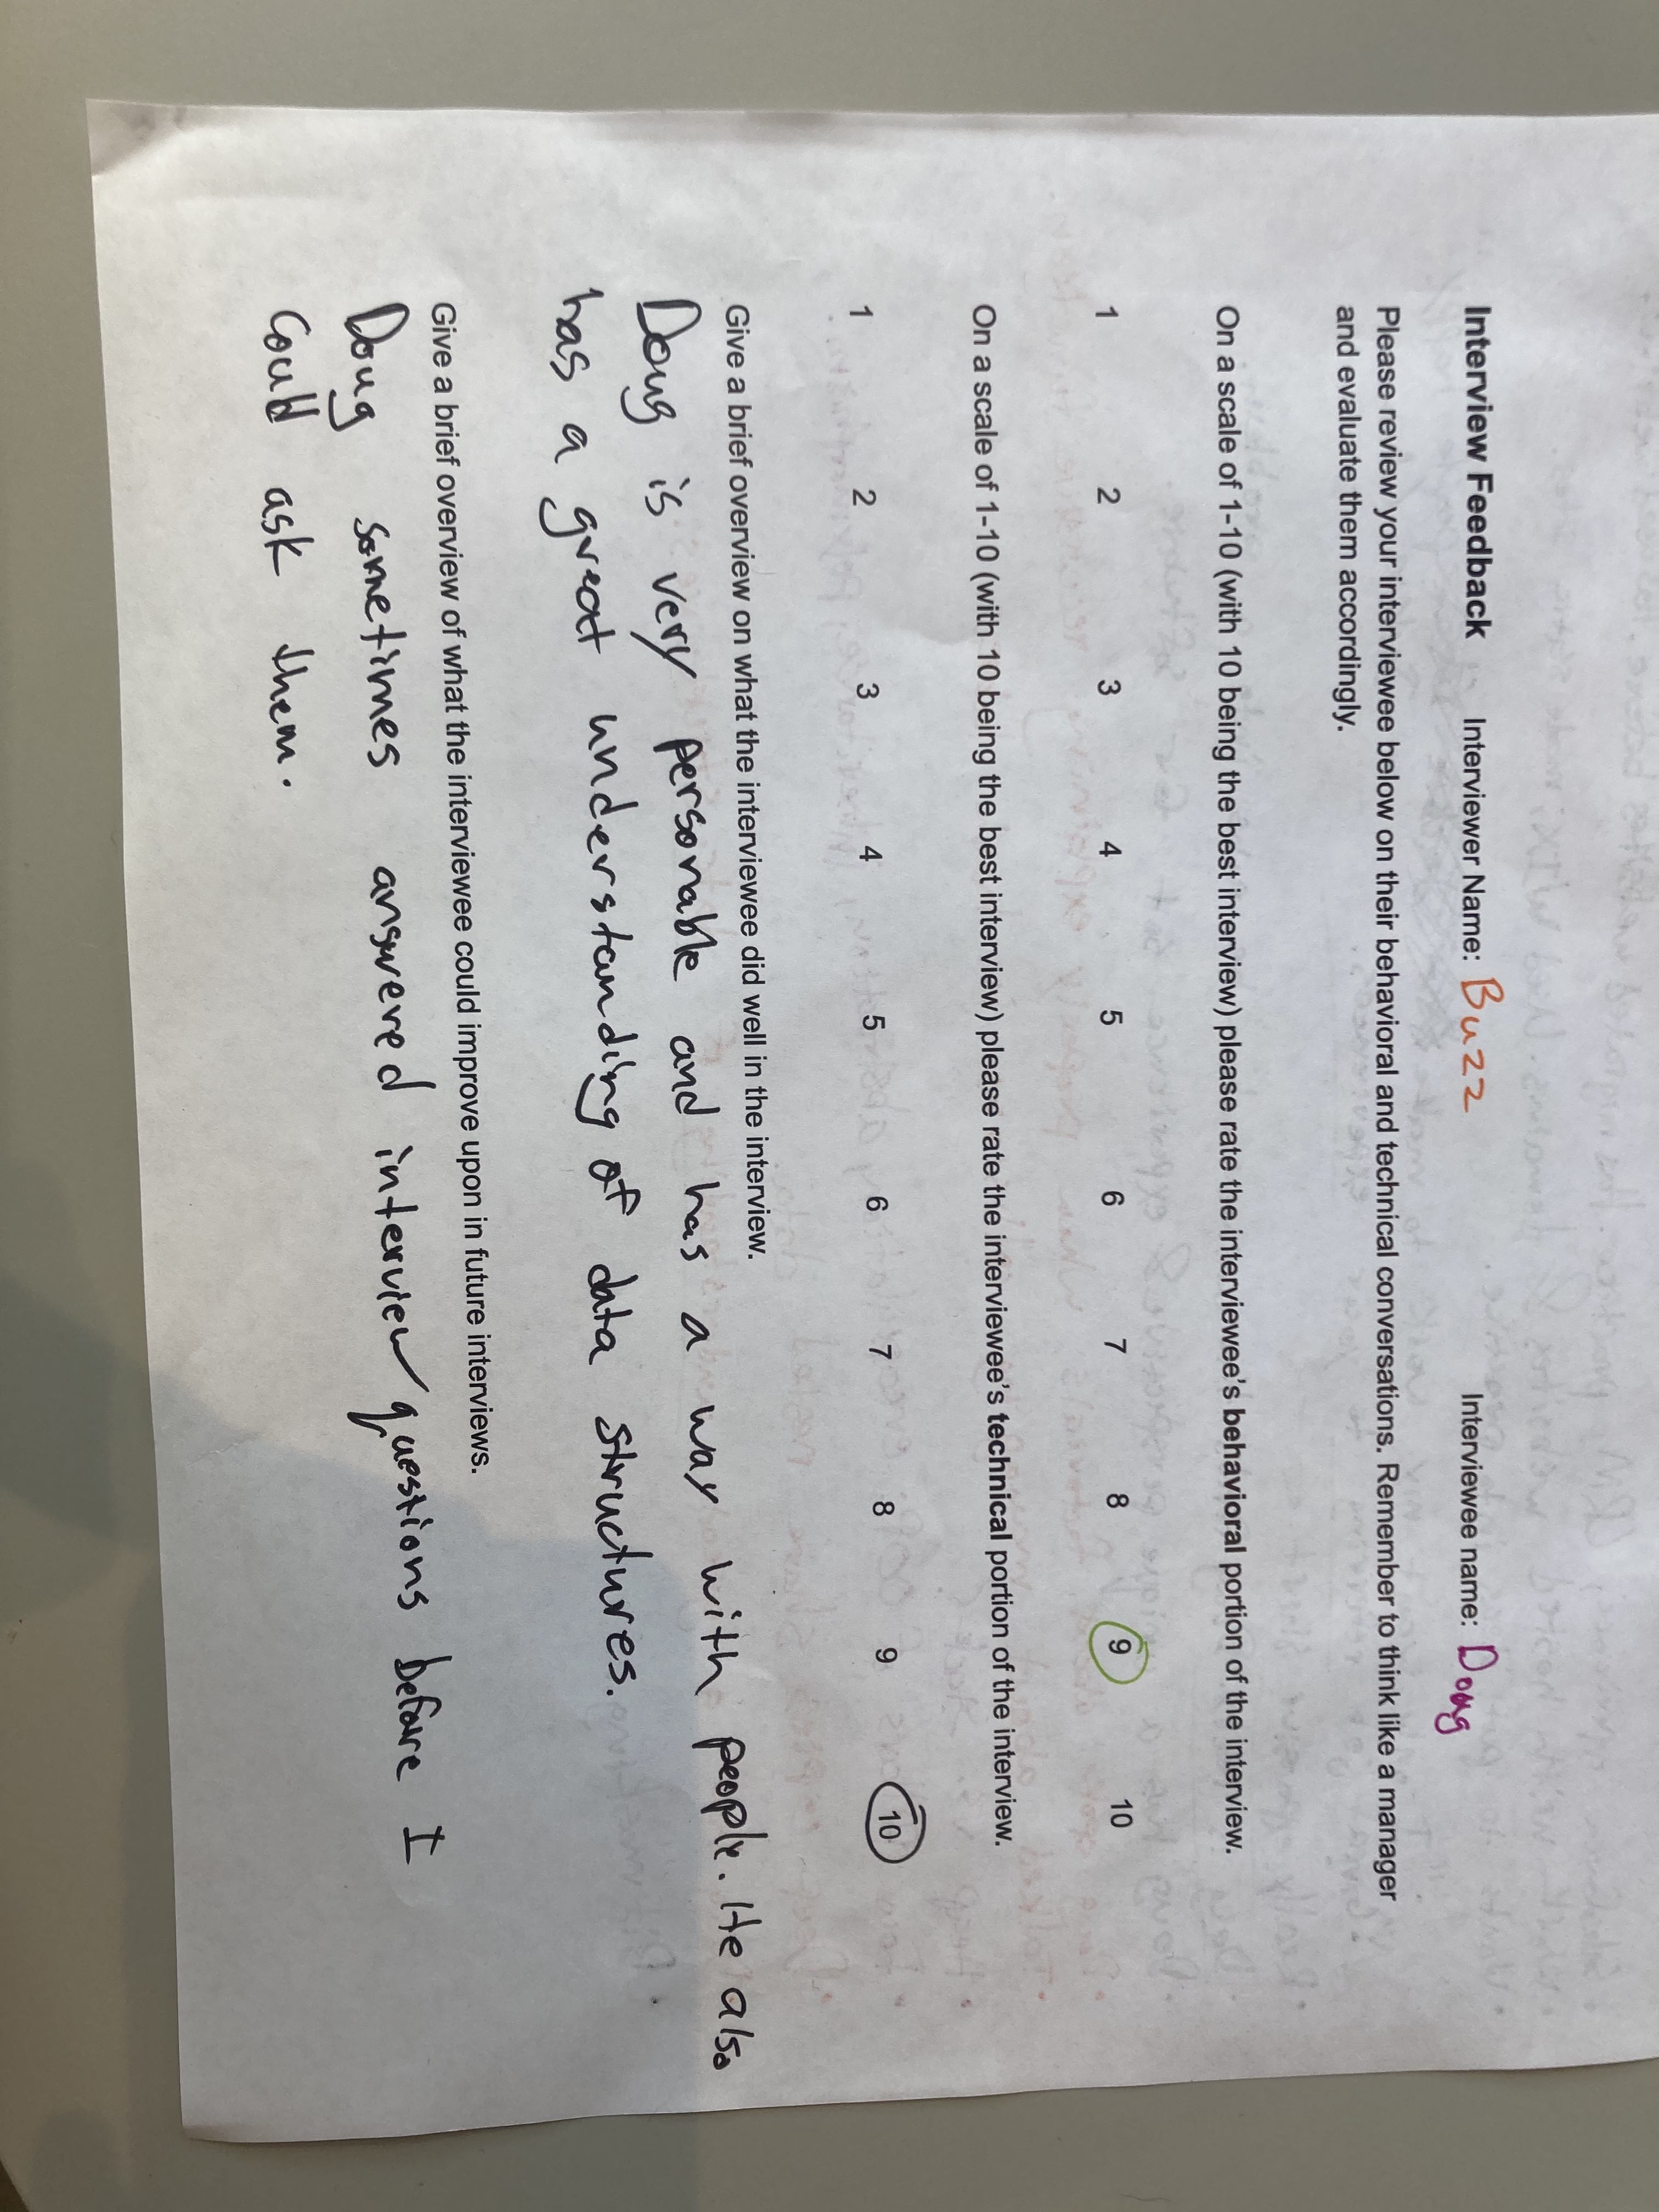 Interview Feedback Interviewer Name: Buzz Interviewee name: Doug
Please review your interviewee below on their behavioral and technical conversations. Remember to think like a manager
and evaluate them accordingly.
On a scale of 1-10 (with 10 being the best interview) please rate the interviewee's behavioral portion of the interview.
1 2 3 4 5 6 7 8 9 10
On a scale of 1-10 (with 10 being the best interview) please rate the interviewee's technical portion of the interview.
1 2 3 4 5 6 7 8 9 10
Give a brief overview on what the interviewee did well in the interview.
Doug is very personable and has a way with people. He also
has a great understanding of data structures.
Give a brief overview of what the interviewee could improve upon in future interviews.
Doug sometimes answered interview questions before I
could ask them.